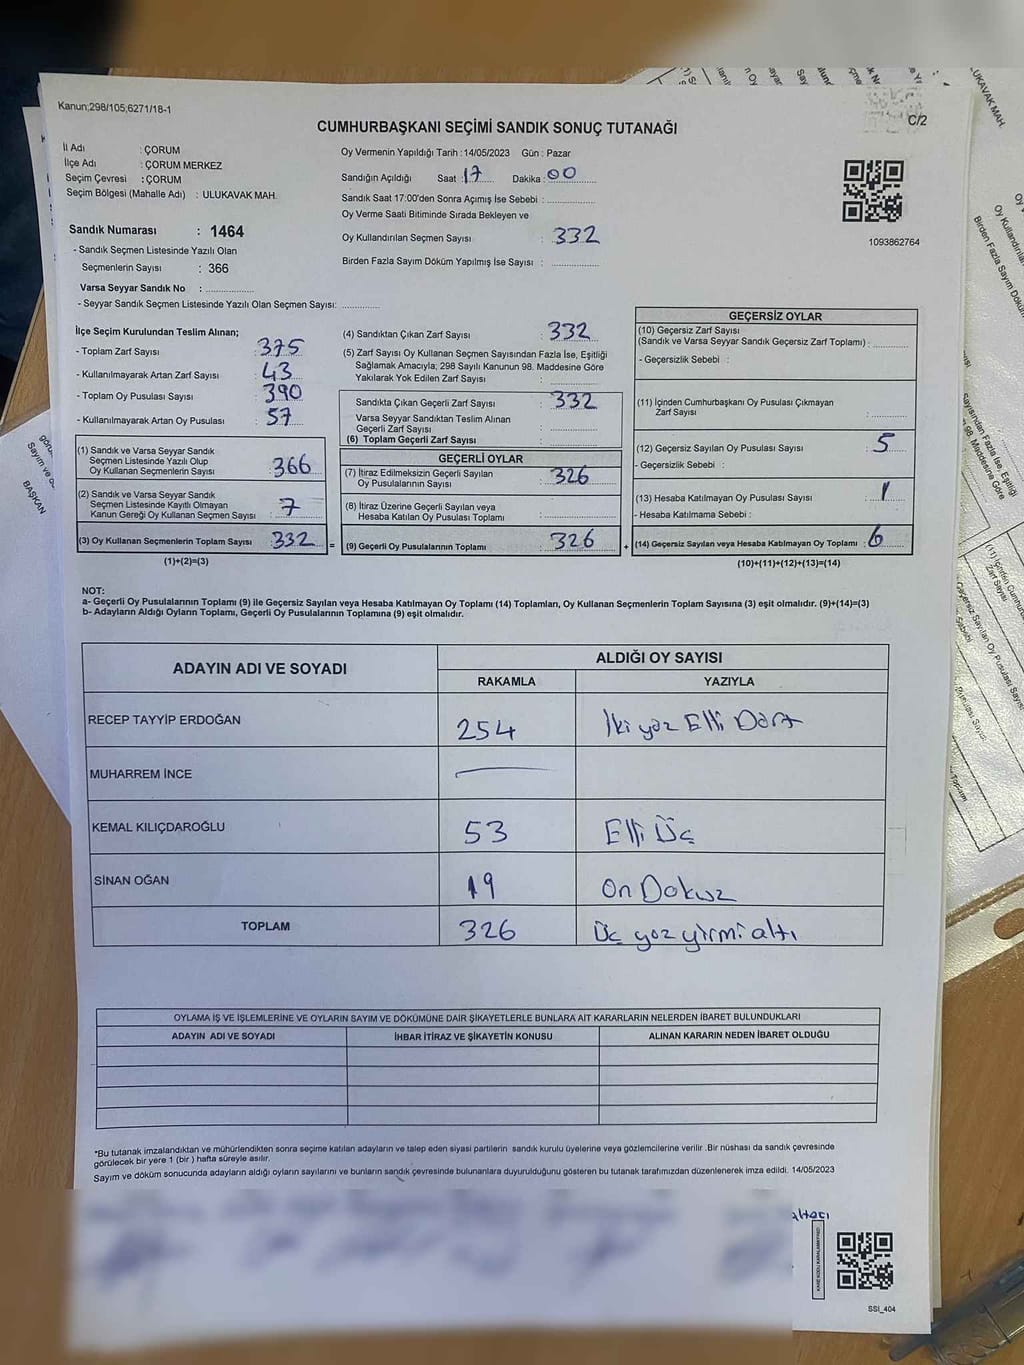 Kanun;298/105;6271/18-1
C/2
CUMHURBAŞKANI SEÇİMİ SANDIK SONUÇ TUTANAĞI
İl Adı : ÇORUM
İlçe Adı : ÇORUM MERKEZ
Seçim Çevresi : ÇORUM
Seçim Bölgesi (Mahalle Adı) : ULUKAVAK MAH.
Oy Vermenin Yapıldığı Tarih : 14/05/2023 Gün : Pazar
Sandığın Açıldığı Saat : 17 Dakika : 00
Sandık Saat 17:00'den Sonra Açımış İse Sebebi :
Oy Verme Saati Bitiminde Sırada Bekleyen ve
Oy Kullandırılan Seçmen Sayısı : 332
Birden Fazla Sayım Döküm Yapılmış İse Sayısı :
1093862764
Sandık Numarası : 1464
- Sandık Seçmen Listesinde Yazılı Olan
Seçmenlerin Sayısı : 366
Varsa Seyyar Sandık No :
- Seyyar Sandık Seçmen Listesinde Yazılı Olan Seçmen Sayısı:
İlçe Seçim Kurulundan Teslim Alınan;
- Toplam Zarf Sayısı : 375
- Kullanılmayarak Artan Zarf Sayısı : 43
- Toplam Oy Pusulası Sayısı : 390
- Kullanılmayarak Artan Oy Pusulası : 57
(1) Sandık ve Varsa Seyyar Sandık
Seçmen Listesinde Yazılı Olup
Oy Kullanan Seçmenlerin Sayısı : 366
(2) Sandık ve Varsa Seyyar Sandık
Seçmen Listesinde Kayıtlı Olmayan
Kanun Gereği Oy Kullanan Seçmen Sayısı : 7
(3) Oy Kullanan Seçmenlerin Toplam Sayısı : 332
(1)+(2)=(3)
(4) Sandıktan Çıkan Zarf Sayısı : 332
(5) Zarf Sayısı Oy Kullanan Seçmen Sayısından Fazla İse, Eşitliği
Sağlamak Amacıyla; 298 Sayılı Kanunun 98. Maddesine Göre
Yakılarak Yok Edilen Zarf Sayısı :
Sandıkta Çıkan Geçerli Zarf Sayısı : 332
Varsa Seyyar Sandıktan Teslim Alınan
Geçerli Zarf Sayısı :
(6) Toplam Geçerli Zarf Sayısı :
GEÇERLİ OYLAR
(7) İtiraz Edilmeksizin Geçerli Sayılan
Oy Pusulalarının Sayısı : 326
(8) İtiraz Üzerine Geçerli Sayılan veya
Hesaba Katılan Oy Pusulası Toplamı :
= (9) Geçerli Oy Pusulalarının Toplamı : 326 +
GEÇERSİZ OYLAR
(10) Geçersiz Zarf Sayısı
(Sandık ve Varsa Seyyar Sandık Geçersiz Zarf Toplamı) :
- Geçersizlik Sebebi :
(11) İçinden Cumhurbaşkanı Oy Pusulası Çıkmayan
Zarf Sayısı :
(12) Geçersiz Sayılan Oy Pusulası Sayısı : 5
- Geçersizlik Sebebi :
(13) Hesaba Katılmayan Oy Pusulası Sayısı : 1
- Hesaba Katılmama Sebebi :
(14) Geçersiz Sayılan veya Hesaba Katılmayan Oy Toplamı : 6
(10)+(11)+(12)+(13)=(14)
NOT:
a- Geçerli Oy Pusulalarının Toplamı (9) ile Geçersiz Sayılan veya Hesaba Katılmayan Oy Toplamı (14) Toplamları, Oy Kullanan Seçmenlerin Toplam Sayısına (3) eşit olmalıdır. (9)+(14)=(3)
b- Adayların Aldığı Oyların Toplamı, Geçerli Oy Pusulalarının Toplamına (9) eşit olmalıdır.
ADAYIN ADI VE SOYADI ALDIĞI OY SAYISI
RAKAMLA YAZIYLA
RECEP TAYYİP ERDOĞAN 254 İki yüz Elli Dört
MUHARREM İNCE
KEMAL KILIÇDAROĞLU 53 Elli Üç
SİNAN OĞAN 19 On Dokuz
TOPLAM 326 Üç yüz yirmi altı
OYLAMA İŞ VE İŞLEMLERİNE VE OYLARIN SAYIM VE DÖKÜMÜNE DAİR ŞİKAYETLERLE BUNLARA AİT KARARLARIN NELERDEN İBARET BULUNDUKLARI
ADAYIN ADI VE SOYADI İHBAR İTİRAZ VE ŞİKAYETİN KONUSU ALINAN KARARIN NEDEN İBARET OLDUĞU
*Bu tutanak imzalandıktan ve mühürlendikten sonra seçime katılan adayların ve talep eden siyasi partilerin sandık kurulu üyelerine veya gözlemcilerine verilir .Bir nüshası da sandık çevresinde
görülecek bir yere 1 (bir ) hafta süreyle asılır.
Sayım ve döküm sonucunda adayların aldığı oyların sayılarını ve bunların sandık çevresinde bulunanlara duyurulduğunu gösteren bu tutanak tarafımızdan düzenlenerek imza edildi. 14/05/2023
SSI_404